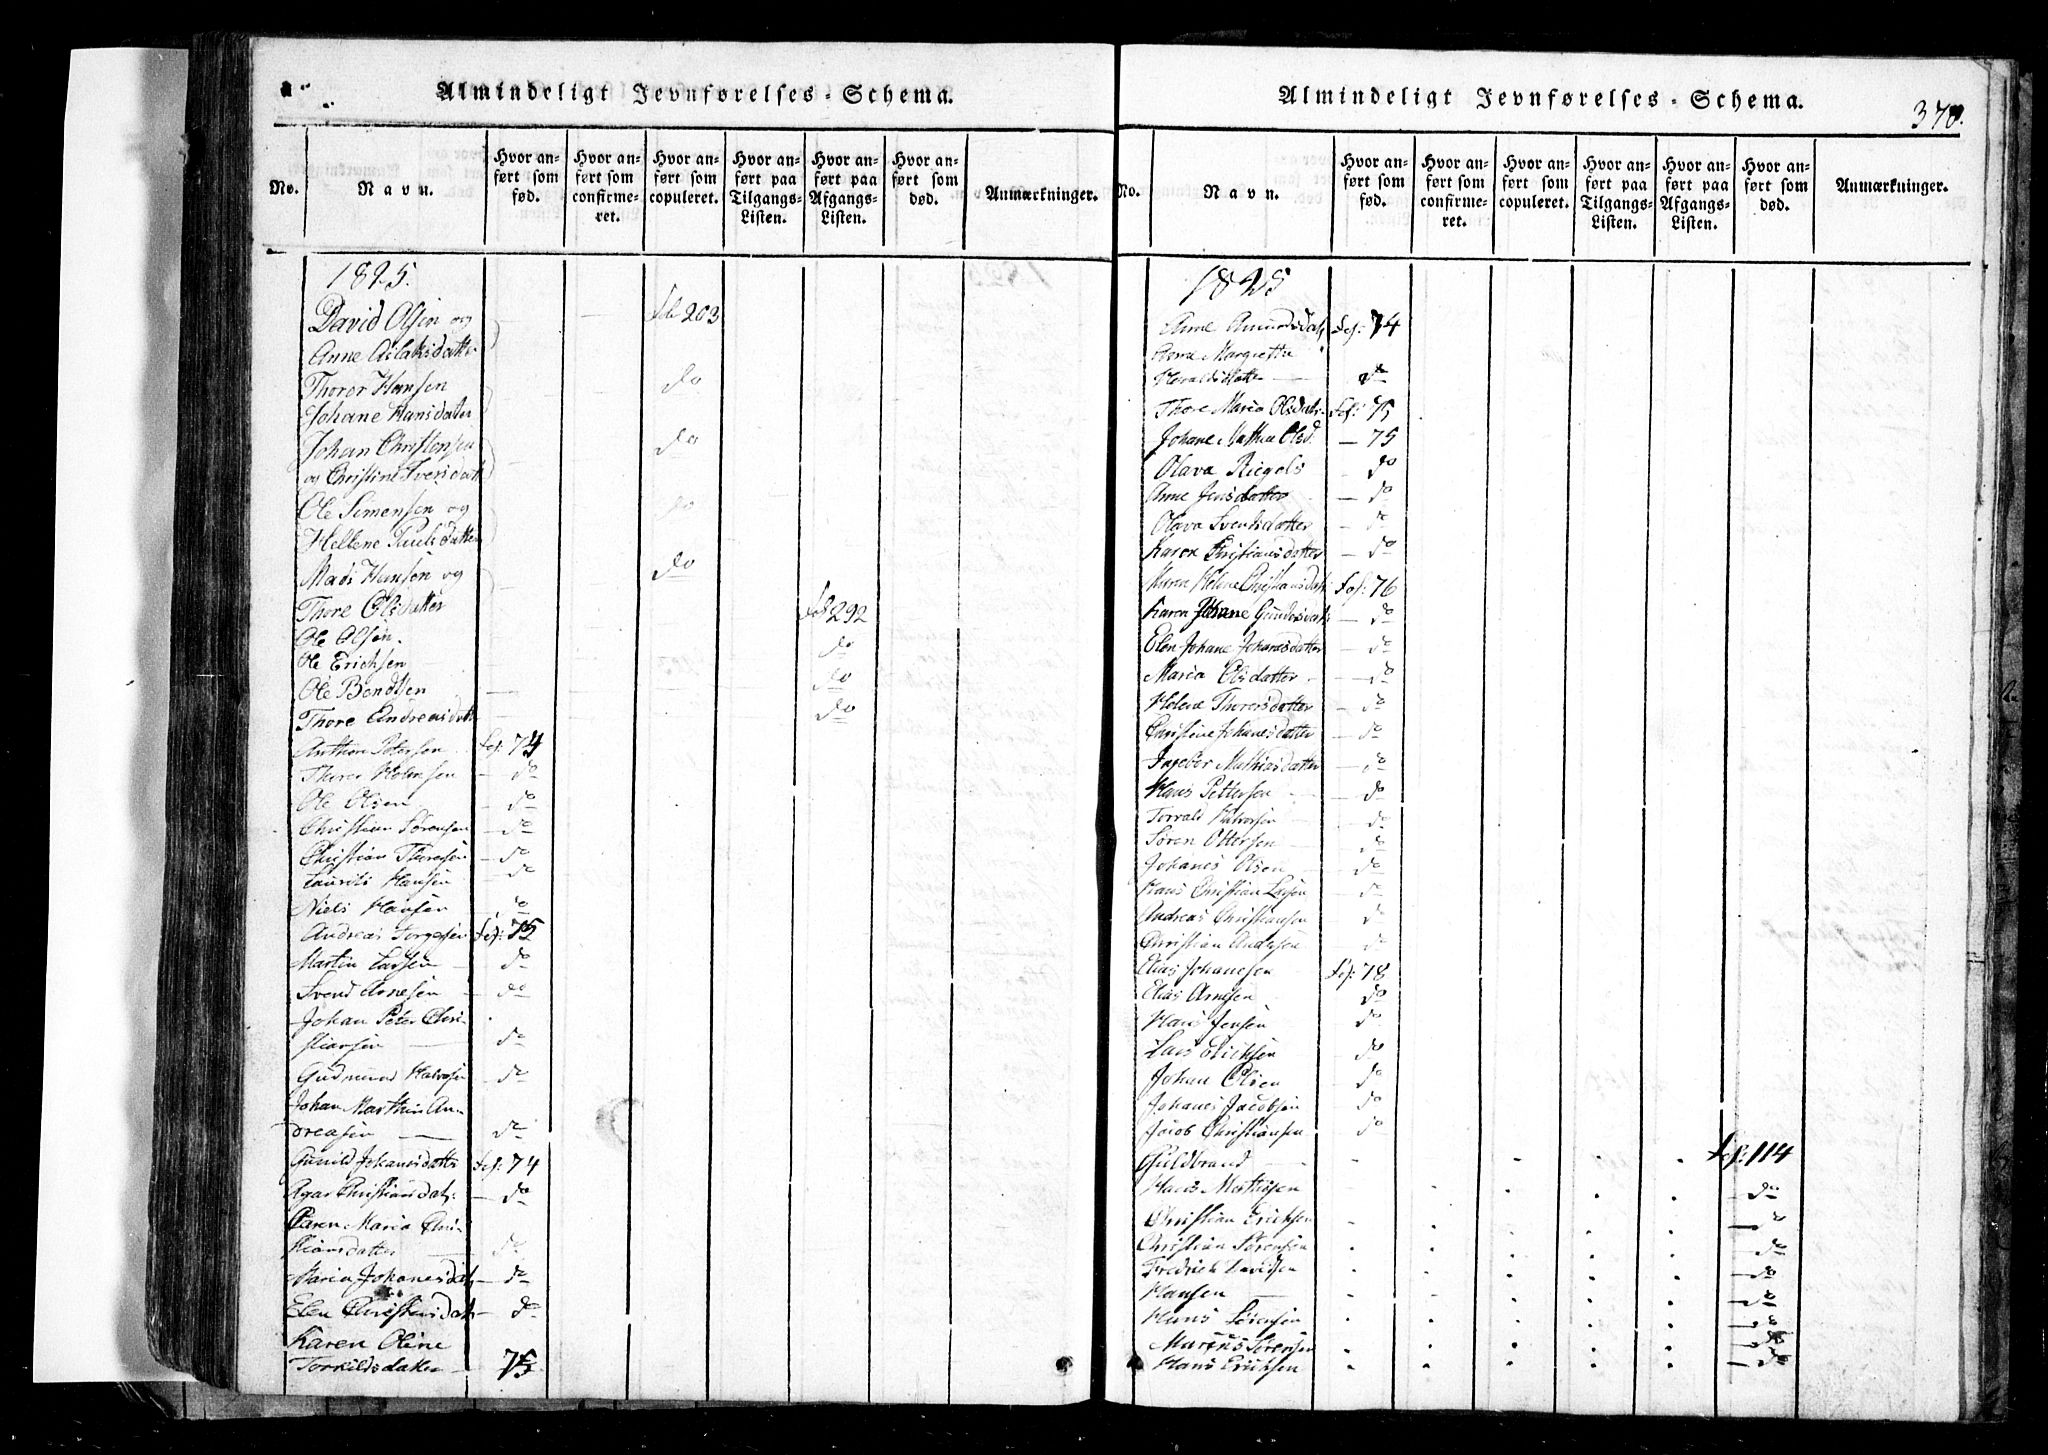 Almindeligt Jevnførelses-Schema.
No. Navn. Hvor anført som fød. Hvor anført som confirmeret. Hvor anført som copuleret. Hvor anført paa Tilgangs-Listen. Hvor anført paa Afgangs-Listen. Hvor anført som død. Anmærkninger.
1825.
David Olsen og fol 203
Anne Aslaksdatter
Thorer Hansen do
Johane Hansdatter
Johan Christensen do
og Christine Iversdatt
Ole Simensen og do
Hellene Pauls datter
Mads Hansen og do
Thore Olsdatter fol 292
Ole Olsen. do
Ole Erichsen
Ole Bendtsen do
Thore Andreasdatt do
Anthon Petersen fol: 74
Thorer Holmsen — do
Ole Olsen — do
Christian Sørensen — do
Christian Thoresen — do
Laurits Hansen — do
Niels Hansen do
Andreas Torgersen fol: 75
Martin Larsen — do
Svend Arnesen — do
Johan Peter Chri-
stiansen — do
Gudmund Halvorsen — do
Johan Marthin An-
dreasen — do
Gunild Johansdatter fol: 74
Agar Christiansdatr: — do
Karen Maria Chri-
stiansdatter — do
Maria Johanesdatr — do
Elen Christensdatr — do
Karen Oline
Torkildsdatter — 75
Almindeligt Jevnførelses-Schema.
370.
No. Navn. Hvor anført som fød. Hvor anført som confirmeret. Hvor anført som copuleret. Hvor anført paa Tilgangs-Listen. Hvor anført paa Afgangs-Listen. Hvor anført som død. Anmærkninger.
1825
Anne Amundsdatr fol: 74
Anne Margrethe
Haraldsdatter — do
Thore Maria Olsdatr. fol: 75
Johane Mathea Olsd. — 75
Olava Riegels — do
Anne Jensdatter — do
Olava Svendsdatter — do
Karen Christiansdatter — do
Maren Helene Christiansdatr fol: 76
Karen Johane Gundersdatr: — do
Elen Johane Johanesdatter — do
Maria Olsdatter — do
Helene Thorersdatter — do
Christine Johanesdatter — do
Ingebor Mathiasdatter — do
Hans Pettersen — do
Torvald Halvorsen — do
Søren Ottersen — do
Johanes Olsen — do
Hans Christian Larsen — do
Andreas Christiansen — do
Christian Andersen — do
Elias Johanesen fol: 78
Elias Arnesen do
Hans Jensen do
Lars Erichsen do
Johan Olsen do
Johanes Jacobsen do
Jacob Christiansen do
Guldbrand — fol: 114
Hans Mathisen — do
Christian Erichsen — do
Christian Sørensen — do
Fredrich Davidsen — do
Hansen — do
Hans Sørensen — do
Marcus Sørensen — do
Hans Erichsen — do